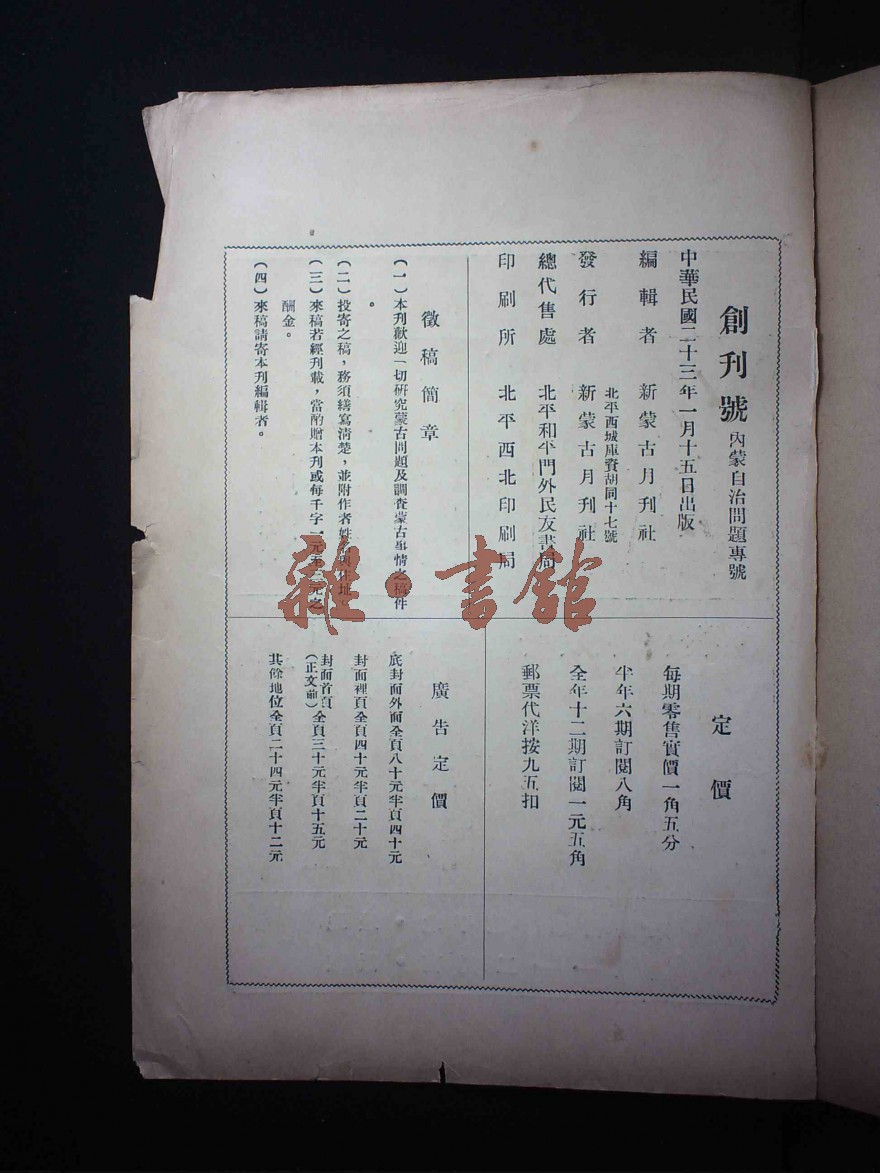 創刊號 內蒙自治問題專號
中華民國二十三年一月十五日出版
編輯者 新蒙古月刊社
北平西城庫資胡同十七號
發行者 新蒙古月刊社
總代售處 北平和平門外民友書局
印刷所 北平西北印刷局
徵稿簡章
(一)本刊歡迎一切研究蒙古問題及調查蒙古事情之稿件
。
(二)投寄之稿,務須繕寫清楚,並附作者姓住址
(三)來稿若經刊載,當酌贈本刊或每千字一元至元之
酬金。
(四)來稿請寄本刊編輯者。
定價
每期零售實價一角五分
半年六期訂閱八角
全年十二期訂閱一元五角
郵票代洋按九五扣
廣告定價
底封面外面全頁八十元半頁四十元
封面裡頁全頁四十元半頁二十元
封面首頁(正文前)全頁三十元半頁十五元
其餘地位全頁二十四元半頁十二元
雜·書館